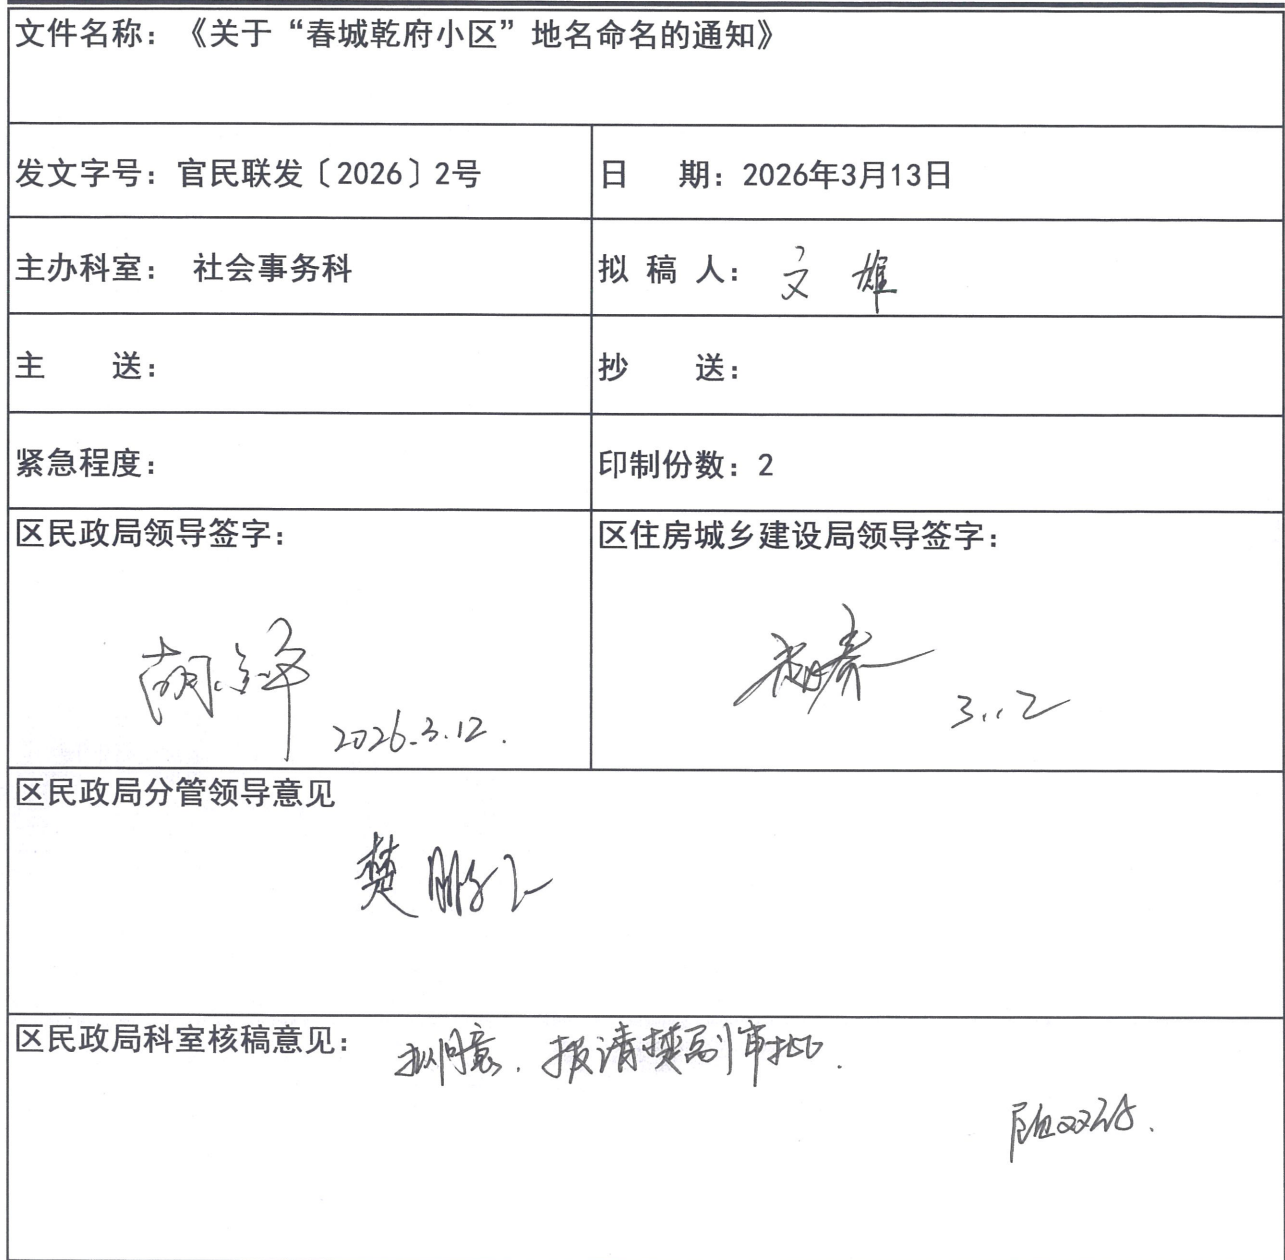 文件名称：《关于“春城乾府小区”地名命名的通知》
发文字号：官民联发〔2026〕2号
日 期：2026年3月13日
主办科室： 社会事务科
拟 稿 人： 文 雄
主 送：
抄 送：
紧急程度：
印制份数：2
区民政局领导签字：
区住房城乡建设局领导签字：
2026.3.12.
3.12
区民政局分管领导意见
樊鹏
区民政局科室核稿意见： 拟同意．报请樊副审批．